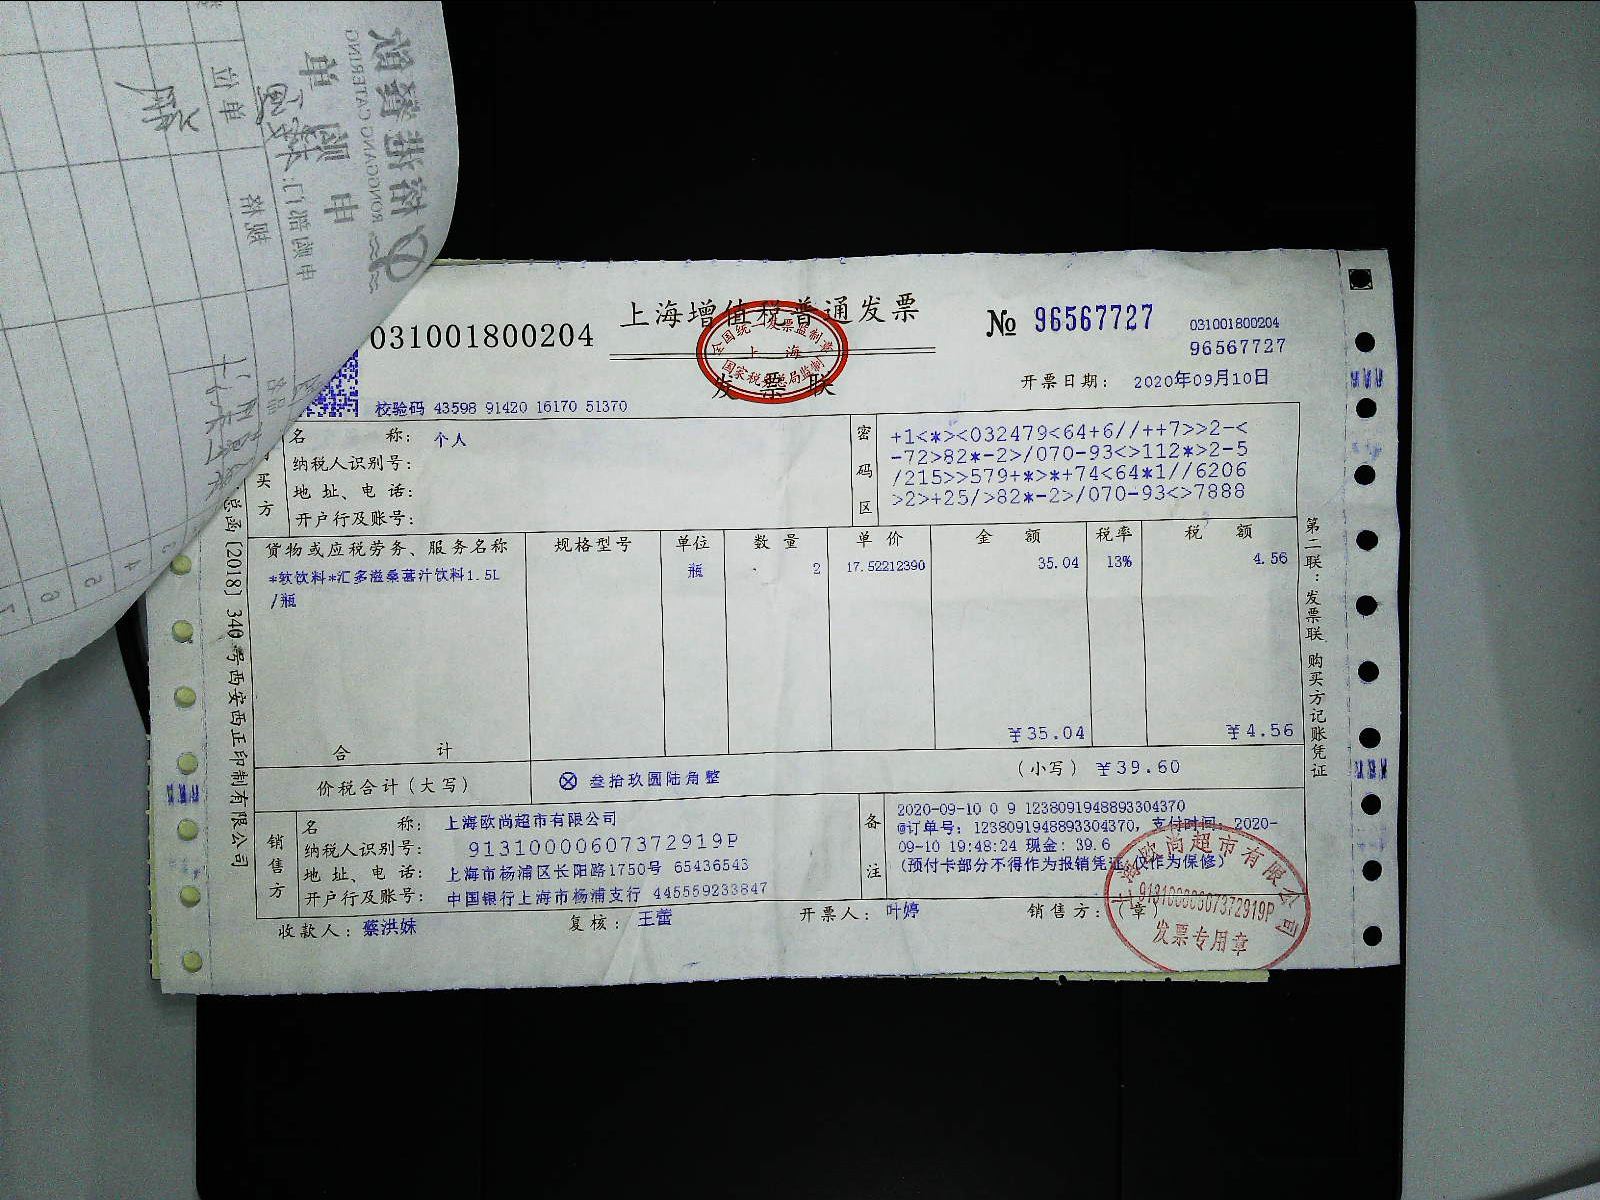 031001800204
上海增值税普通发票
发票联
全国统一发票监制章
上海
国家税务总局监制
№ 96567727
031001800204
96567727
开票日期: 2020年09月10日
校验码 43598 91420 16170 51370
买方
名 称: 个人
纳税人识别号:
地址、电话:
开户行及账号:
密码区
+1<*><032479<64+6//++7>>2-<
-72>82*-2>/070-93<>112*>2-5
/215>>579+*>*+74<64*1//6206
>2>+25/>82*-2>/070-93<>7888
货物或应税劳务、服务名称 规格型号 单位 数量 单价 金额 税率 税额
*软饮料*汇多滋桑葚汁饮料1.5L 瓶 2 17.52212390 35.04 13% 4.56
/瓶
合计 ¥35.04 ¥4.56
价税合计(大写) ⊗ 叁拾玖圆陆角整 (小写) ¥39.60
销售方
名 称: 上海欧尚超市有限公司
纳税人识别号: 91310000607372919P
地址、电话: 上海市杨浦区长阳路1750号 65436543
开户行及账号: 中国银行上海市杨浦支行 445559233847
备注
2020-09-10 0 9 1238091948893304370
@订单号: 1238091948893304370, 支付时间: 2020-
09-10 19:48:24 现金: 39.6
(预付卡部分不得作为报销凭证,仅作为保修)
收款人: 蔡洪妹 复核: 王蕾 开票人: 叶婷 销售方:(章)
上海欧尚超市有限公司
91310000607372919P
发票专用章
第二联:发票联 购买方记账凭证
总函[2018] 340号西安西正印制有限公司
申领单
RONGGANG CATERING
申领部门:
单位